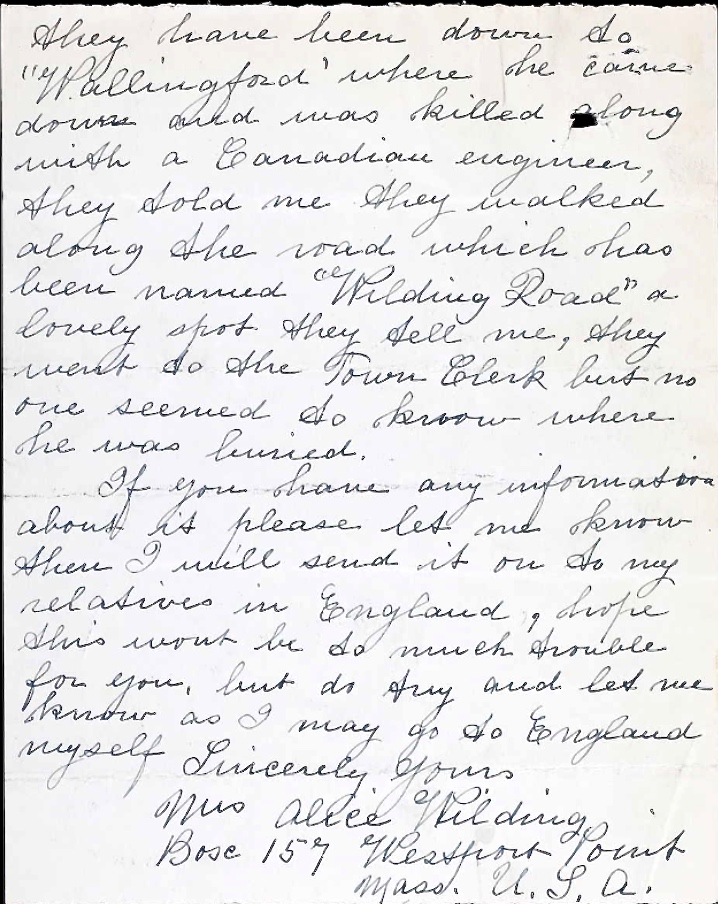 they have been down to
"Wallingford" where he came
down and was killed along
with a Canadian engineer,
they told me they walked
along the road which has
been named "Wilding Road" a
lovely spot they tell me, they
went to the Town Clerk but no
one seemed to know where
he was buried.
If you have any information
about it please let me know
then I will send it on to my
relatives in England, hope
this wont be to much trouble
for you, but do try and let me
know as I may go to England
myself Sincerely Yours
Mrs Alice Wilding
Box 157 Westport Point
Mass. U. S. A.